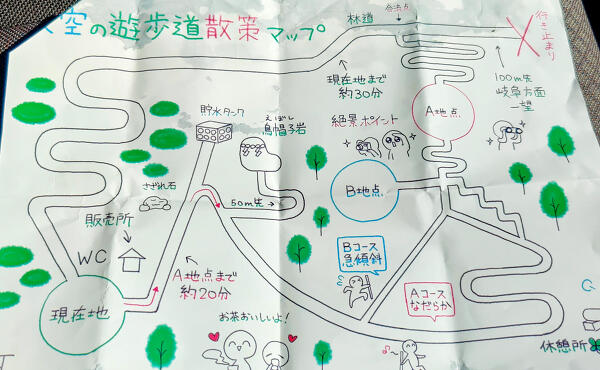 空の遊歩道散策マップ
合流点
林道
行き止まり
100m先
岐阜方面
一望
現在地まで
約30分
A地点
絶景ポイント
貯水タンク
えぼし
烏帽子岩
さざれ石
50m先
B地点
販売所
WC
A地点まで
約20分
Bコース
急傾斜
Aコース
なだらか
現在地
お茶おいしいよ!
休憩所